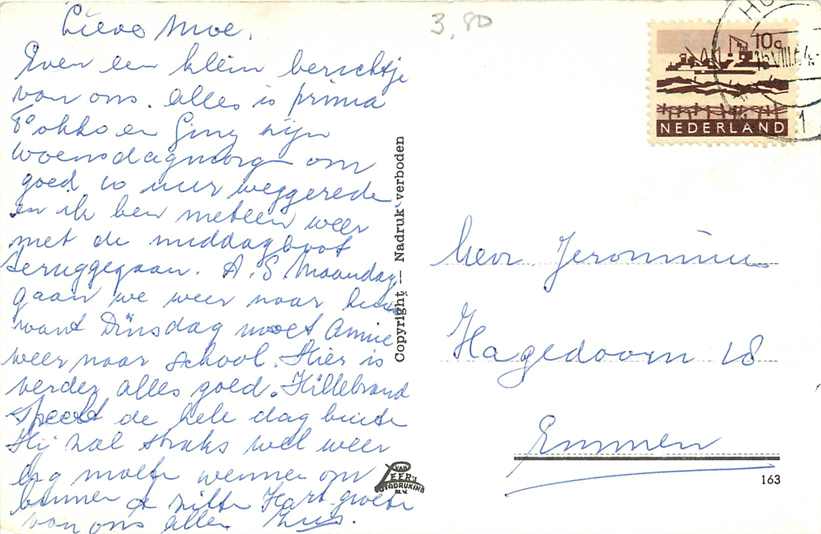 Lieve Moe.
Even een klein berichtje
van ons. Alles is prima
Fokko en Giny zijn
woensdagmorg om
goed 10 uur weggereden
en ik ben meteen weer
met de middagboot
teruggegaan. A.S. Maandag
gaan we weer naar huis
want Dinsdag moet Annie
weer naar school. Hier is
verder alles goed. Hillebrand
speelt de hele dag buiten
Hij zal straks wel weer
erg moeten wennen om
binnen te zitten Hart. groeten
van ons allen
3,80
10c
NEDERLAND
15 VIII 64
1
Copyright — Nadruk verboden
Mevr Jeronimus
Hagedoorn 18
Emmen
VAN LEER'S FOTODRUKIND N.V.
163